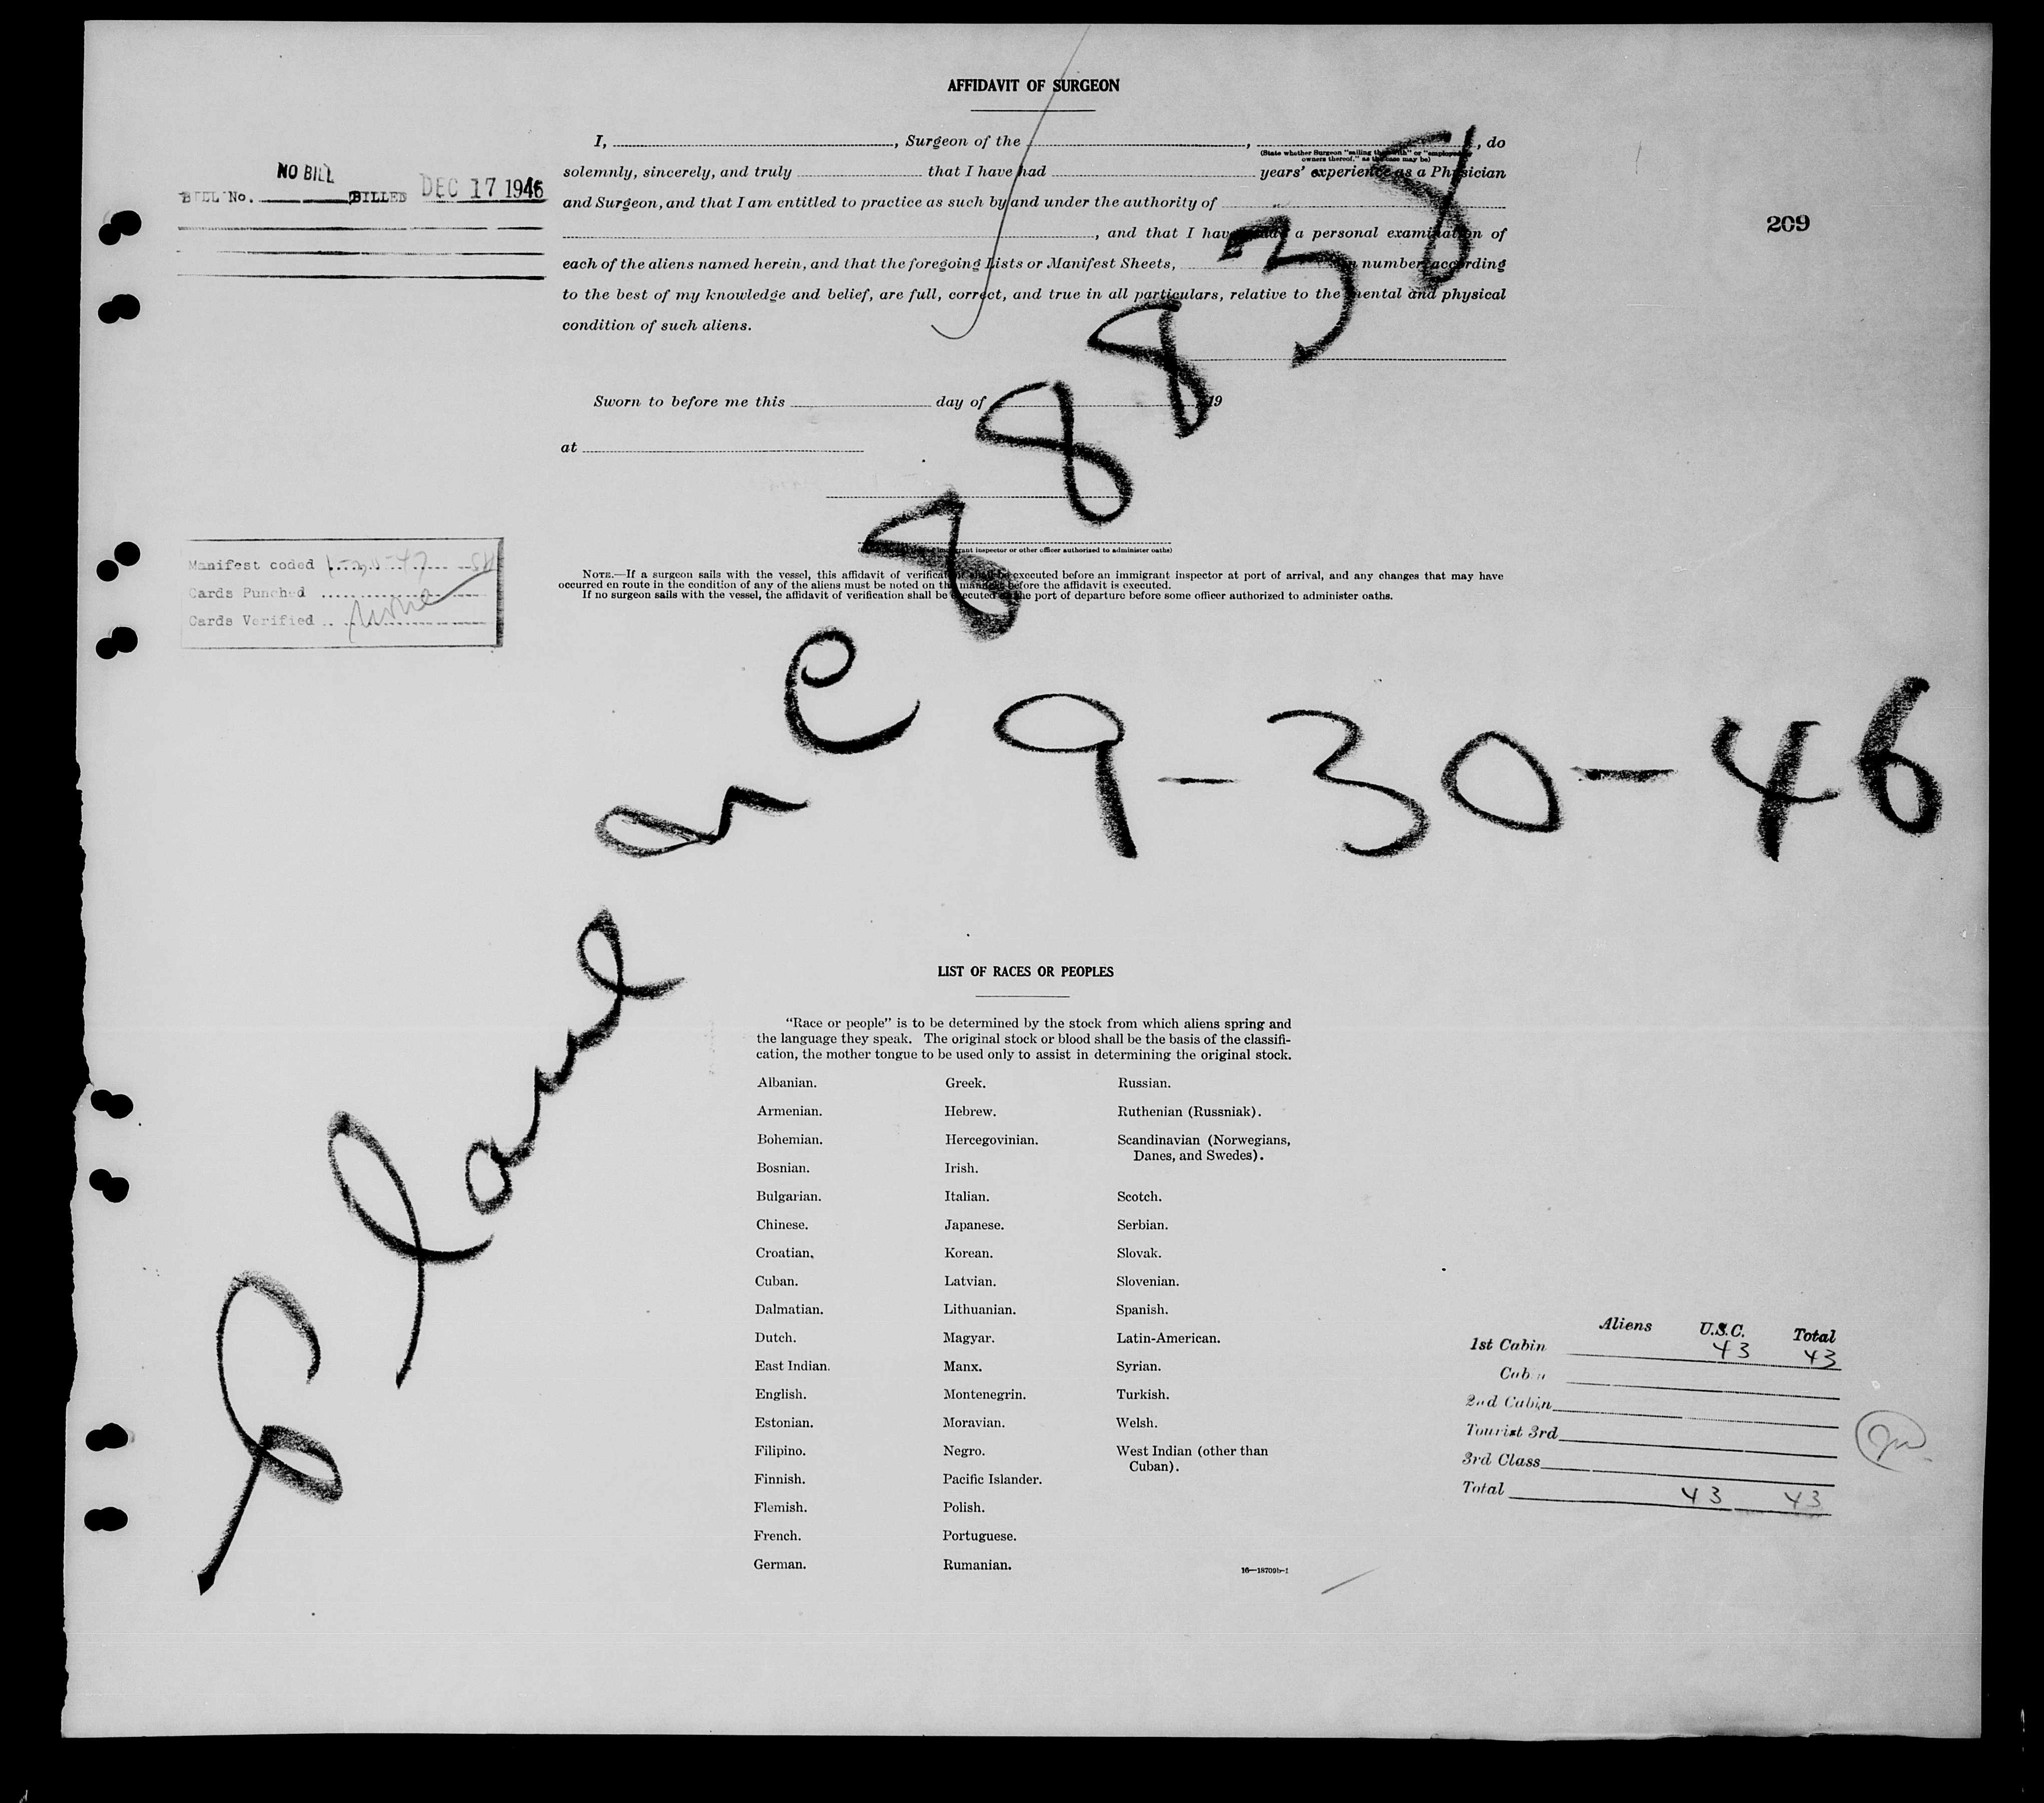 AFFIDAVIT OF SURGEON
I, , Surgeon of the , , do
(State whether Surgeon "sailing therewith" or "employed by
owners thereof," as the case may be)
solemnly, sincerely, and truly that I have had years' experience as a Physician
and Surgeon, and that I am entitled to practice as such by and under the authority of
, and that I have made a personal examination of
each of the aliens named herein, and that the foregoing Lists or Manifest Sheets, in number, according
to the best of my knowledge and belief, are full, correct, and true in all particulars, relative to the mental and physical
condition of such aliens.
NO BILL
BILL No. BILLED DEC 17 1946
209
Sworn to before me this day of 19
at
immigrant inspector or other officer authorized to administer oaths)
NOTE.—If a surgeon sails with the vessel, this affidavit of verification shall be executed before an immigrant inspector at port of arrival, and any changes that may have
occurred en route in the condition of any of the aliens must be noted on the manifest before the affidavit is executed.
If no surgeon sails with the vessel, the affidavit of verification shall be executed at the port of departure before some officer authorized to administer oaths.
Manifest coded
Cards Punched
Cards Verified None
Plane 88838
9-30-46
LIST OF RACES OR PEOPLES
"Race or people" is to be determined by the stock from which aliens spring and
the language they speak. The original stock or blood shall be the basis of the classifi-
cation, the mother tongue to be used only to assist in determining the original stock.
Albanian. Greek. Russian.
Armenian. Hebrew. Ruthenian (Russniak).
Bohemian. Hercegovinian. Scandinavian (Norwegians,
Danes, and Swedes).
Bosnian. Irish.
Bulgarian. Italian. Scotch.
Chinese. Japanese. Serbian.
Croatian. Korean. Slovak.
Cuban. Latvian. Slovenian.
Dalmatian. Lithuanian. Spanish.
Dutch. Magyar. Latin-American.
East Indian. Manx. Syrian.
English. Montenegrin. Turkish.
Estonian. Moravian. Welsh.
Filipino. Negro. West Indian (other than
Cuban).
Finnish. Pacific Islander.
Flemish. Polish.
French. Portuguese.
German. Rumanian.
16—18709b-1
Aliens U.S.C. Total
1st Cabin 43 43
Cabin
2nd Cabin
Tourist 3rd
3rd Class
Total 43 43